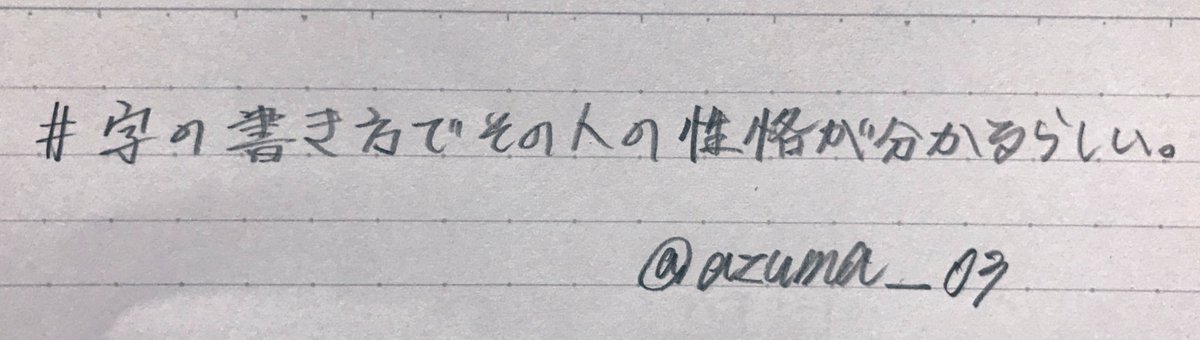 #字の書き方でその人の性格が分かるらしい。
@azuma_03